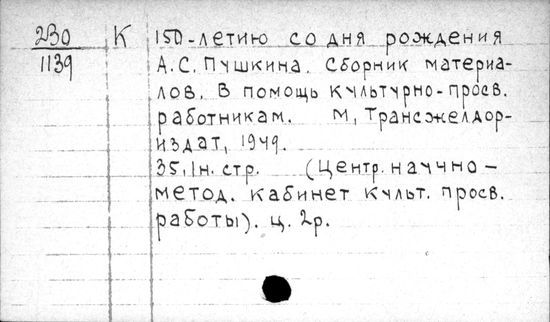 230 К 150-летию со дня рождения
1139 А.С. Пушкина. Сборник материа-
лов. В помощь культурно-просв.
работникам. М, Трансжелдор-
издат, 1949.
35, 1н. стр. (Центр. научно-
метод. кабинет культ. просв.
работы). ц. 2р.